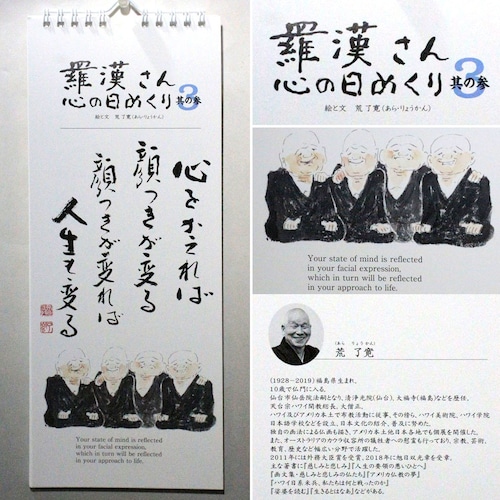 羅漢さん
心の日めくり
3
其の参
絵と文 荒 了寛(あら・りょうかん)
心をかえれば
顔つきが変る
顔つきが変れば
人生も変る
Your state of mind is reflected
in your facial expression,
which in turn will be reflected
in your approach to life.
羅漢さん
心の日めくり
3
其の参
絵と文 荒 了寛(あら・りょうかん)
Your state of mind is reflected
in your facial expression,
which in turn will be reflected
in your approach to life.
(あら りょうかん)
荒 了寛
(1928−2019)福島県生まれ。
10歳で仏門に入る。
仙台市仙岳院法嗣となり、清浄光院(仙台)、大福寺(福島)などを歴任。
天台宗ハワイ開教総長、大僧正。
ハワイ及びアメリカ本土で布教活動に従事。その傍ら、ハワイ美術院、ハワイ学院
日本語学校などを設立。日本文化の紹介、普及に努めた。
独自の画法による仏画も描き、アメリカ本土他日本各地でも個展を開催した。
また、オーストラリアのカウラ収容所の犠牲者への慰霊も行っており、宗教、芸術、
教育、歴史など幅広い分野で活躍した。
2011年には外務大臣賞を受賞、2018年に旭日双光章を受章。
主な著書に『慈しみと悲しみ』『人生の要領の悪いひとへ』
『画文集・慈しみと悲しみの仏たち』『アメリカ仏教の夢』
『ハワイ日系米兵、私たちは何と戦ったのか』
『娑婆を読む』『生きるとはなあ』などがある。